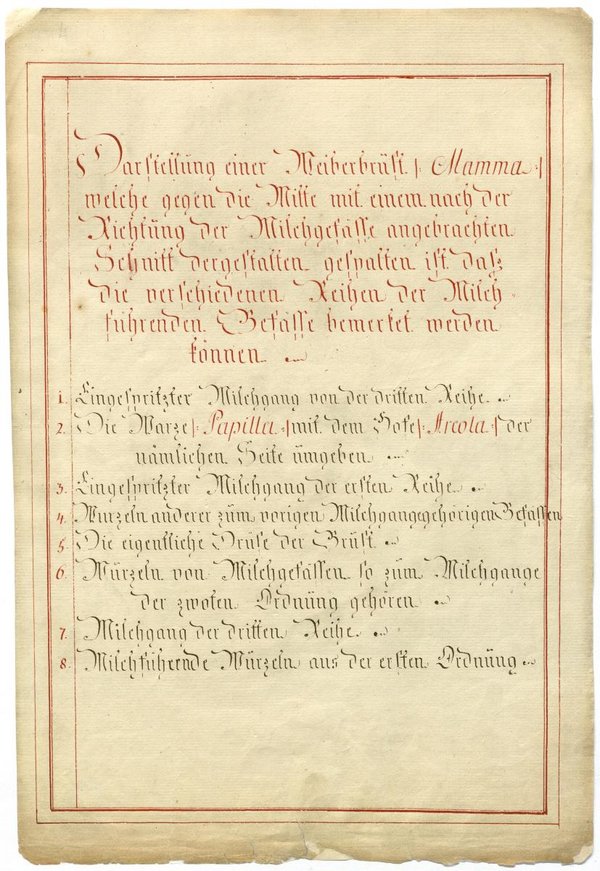 Darstellung einer Weiberbrüst /: Mamma :/
welche gegen die Mitte mit einem nach der
Richtung der Milchgefässe angebrachten
Schnitt dergestalten gespalten ist daß
die verschiedenen Reihen der Milch
führenden Gefässe bemerket werden
können.
1. Eingespritzter Milchgang von der dritten Reihe.
2. Die Warze /: Papilla :/ mit dem Hofe /: Areola :/ der
nämlichen Seite umgeben
3. Eingespritzter Milchgang der ersten Reihe.
4. Wurzeln anderer zum vorigen Milchgange gehörigen Gefässen
5. Die eigentliche Drüse der Brüst.
6. Würzeln von Milchgefässen so zum Milchgange
der zwoten Ordnüng gehören.
7. Milchgang der dritten Reihe.
8. Milchführende Würzeln aus der ersten Ordnüng